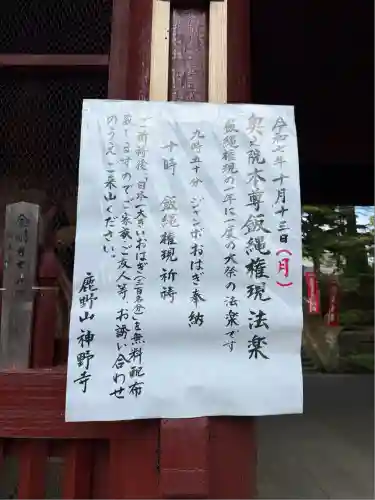 令和七年十月十三日(月)
奥之院本尊飯縄権現法楽
飯縄権現の一年に一度の大祭の法楽です
九時五十分 ジャンボおはぎ奉納
十時 飯縄権現祈祷
ご祈祷後「日本一大きいおはぎ(三百名分)」を無料配布
致しますので、ご家族、ご友人等、お誘い合わせ
のうえ、ご来山ください。
鹿野山神野寺